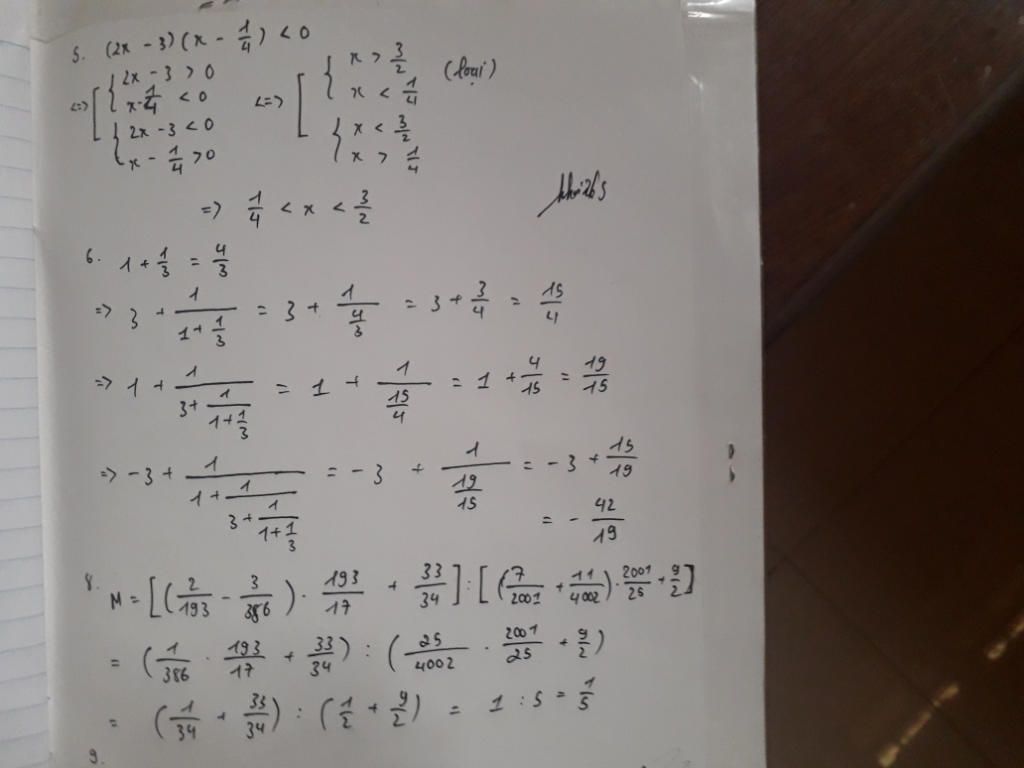 5. (2x - 3)(x - 1/4) < 0
<=> [ { 2x - 3 > 0 ; x - 1/4 < 0 <=> [ { x > 3/2 ; x < 1/4 (loại)
{ 2x - 3 < 0 ; x - 1/4 > 0 { x < 3/2 ; x > 1/4
=> 1/4 < x < 3/2
6. 1 + 1/3 = 4/3
=> 3 + 1/(1 + 1/3) = 3 + 1/(4/3) = 3 + 3/4 = 15/4
=> 1 + 1/(3 + 1/(1 + 1/3)) = 1 + 1/(15/4) = 1 + 4/15 = 19/15
=> -3 + 1/(1 + 1/(3 + 1/(1 + 1/3))) = -3 + 1/(19/15) = -3 + 15/19
= - 42/19
8. M = [(2/193 - 3/386) . 193/17 + 33/34] : [(7/2001 + 11/4002) . 2001/25 + 9/2]
= (1/386 . 193/17 + 33/34) : (25/4002 . 2001/25 + 9/2)
= (1/34 + 33/34) : (1/2 + 9/2) = 1 : 5 = 1/5
9.